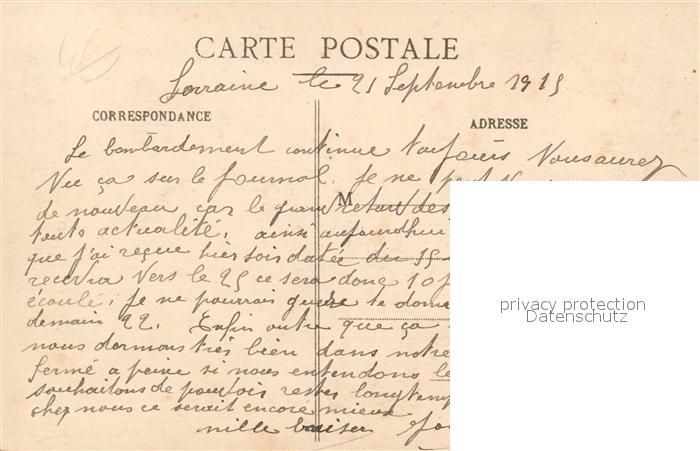 4€
CARTE POSTALE
Lorraine le 21 Septembre 1915
CORRESPONDANCE
ADRESSE
Le bombardement continue toujours Vousaurez
Vu ça sur le journal. Je ne
M
de nouveau car le grand retard des
toute actualité. ainsi aujourdhui
que j'ai reçue hier soir datée du 15
recevra vers le 25 ce sera donc 10 j
écoulé; je ne pourrais guère te
demain 22. Enfin outre que ça
nous dormons très bien dans notre
fermé a peine si nous entendons le
souhaitons de pouvoir rester longtemp
chez nous ce serait encore mieux
mille baiser
privacy protection
Datenschutz